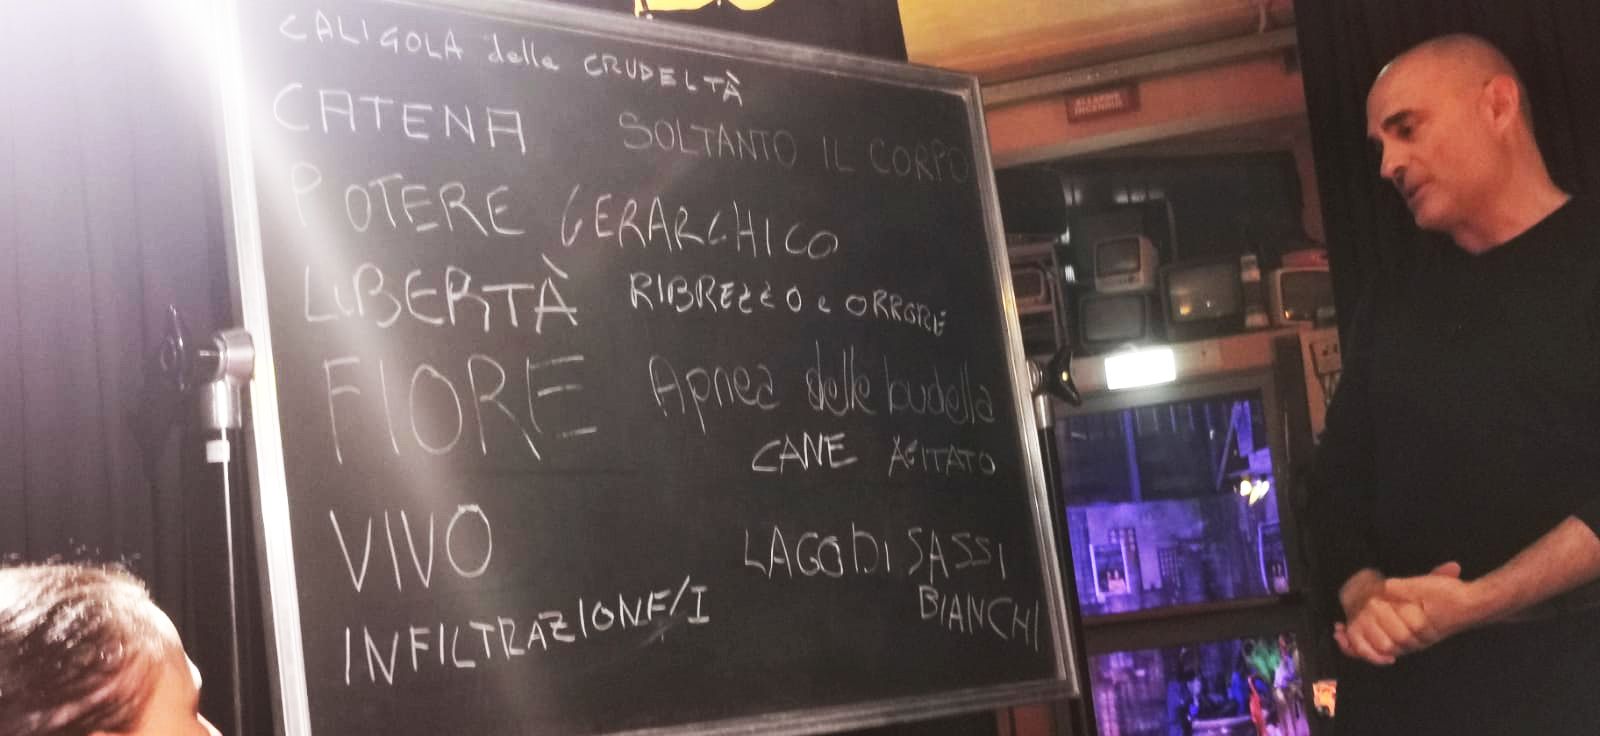 CALIGOLA delle CRUDELTÀ
CATENA SOLTANTO IL CORPO
POTERE GERARCHICO
LIBERTÀ RIBREZZO e ORRORE
FIORE Apnea delle budella
CANE AGITATO
VIVO LAGO DI SASSI
BIANCHI
INFILTRAZIONE/I
ALLARME
INCENDIO